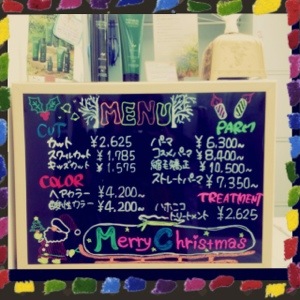 MENU
CUT
カット ¥2.625
スクールカット ¥1.785
キッズカット ¥1.575
COLOR
ヘアカラー ¥4.200~
酸性カラー ¥4.200~
PARM
パーマ ¥6.300~
コスメパーマ ¥8.400~
縮毛矯正 ¥10.500~
ストレートパーマ ¥7.350~
TREATMENT
ハホニコ
トリートメント ¥2.625
Merry Christmas